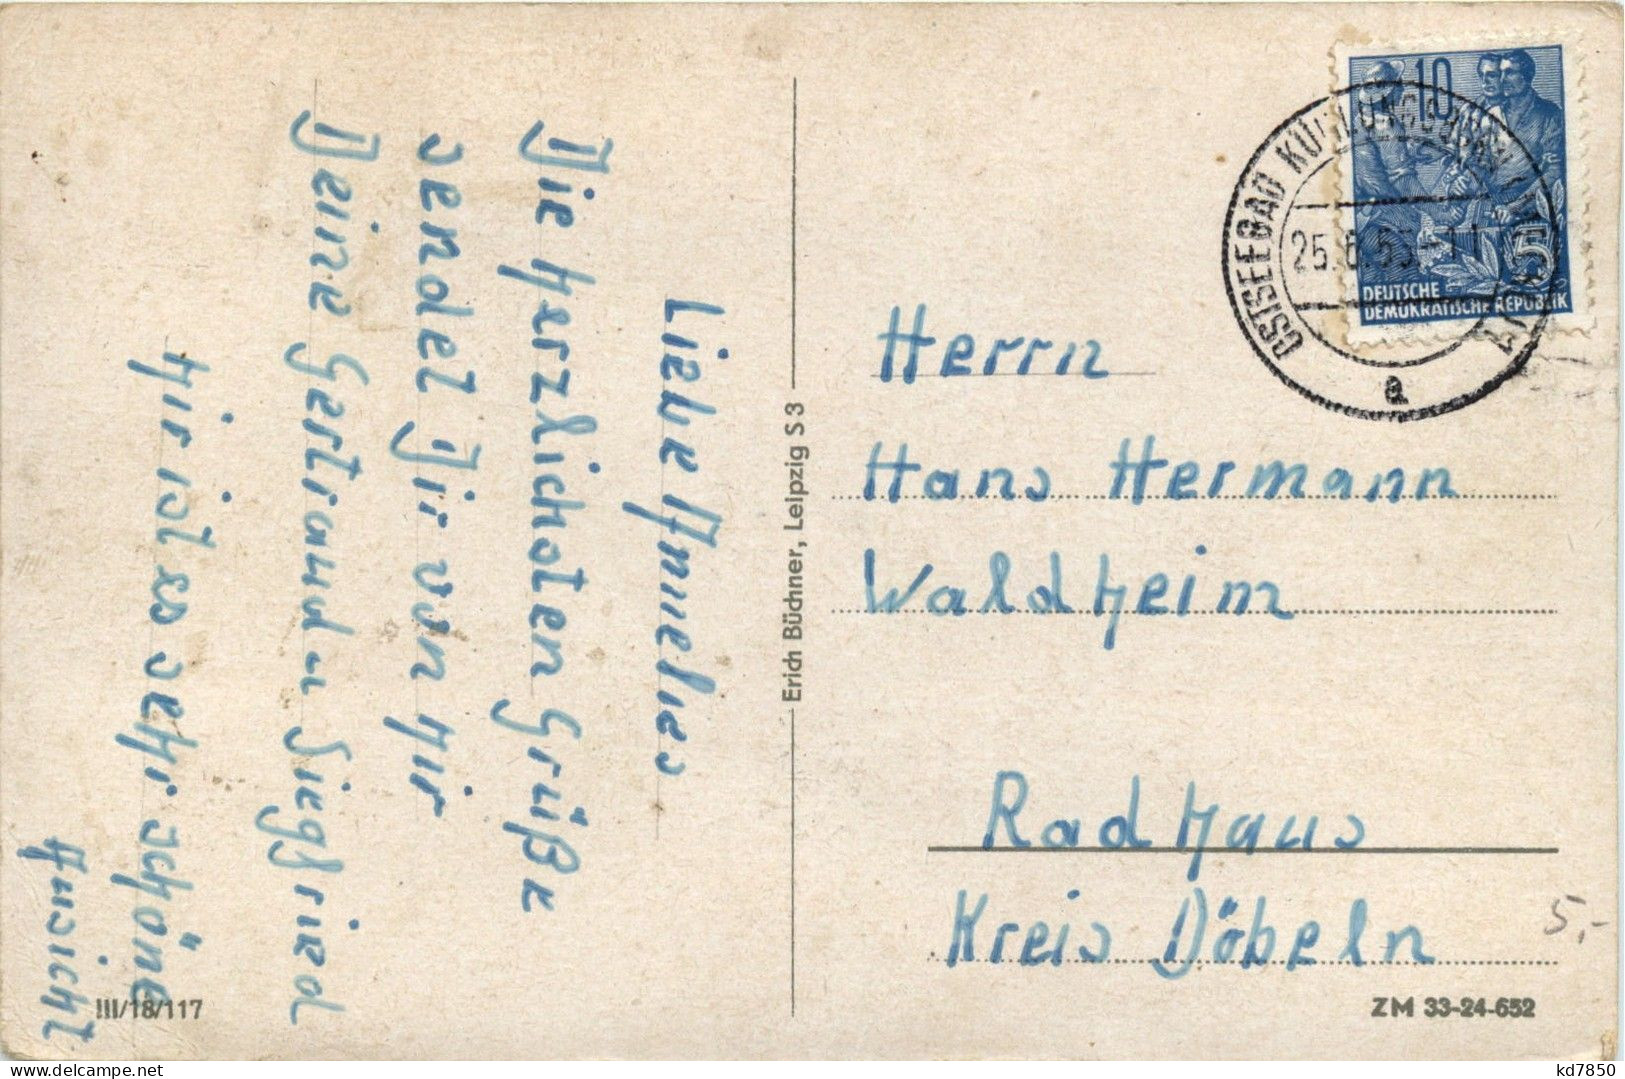 Liebe Annelies
Die Herzlichsten Grüße
sendet Dir von Hir
Deine Gertraud u Siegfried
Hir ist es sehr schöne
Ausicht
III/18/117
Erich Büchner, Leipzig S 3
10
5
DEUTSCHE
DEMOKRATISCHE REPUBLIK
OSTSEEBAD KÜHLUNGSBORN
25.6.55-11
a
Herrn
Hans Hermann
Waldheim
Radhaus
Kreis Döbeln
5,-
ZM 33-24-652
kd7850